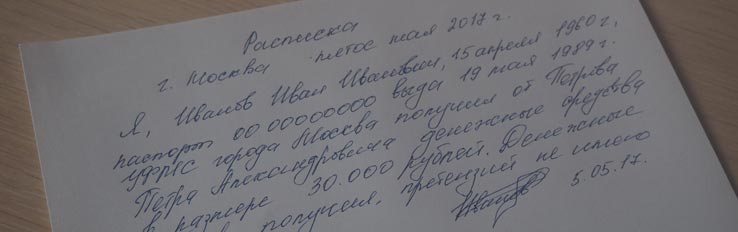 Расписка
г. Москва пятое мая 2017 г.
Я, Иванов Иван Иванович, 15 апреля 1960 г,
паспорт 00 00000000 выдан 19 мая 1989 г.
УФМС города Москва получил от Петрова
Петра Александровича денежные средства
в размере 30.000 рублей. Денежные
получил, претензий не имею
5.05.17.